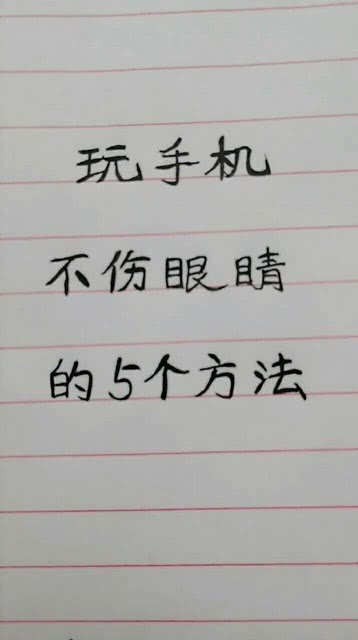 玩手机
不伤眼睛
的5个方法